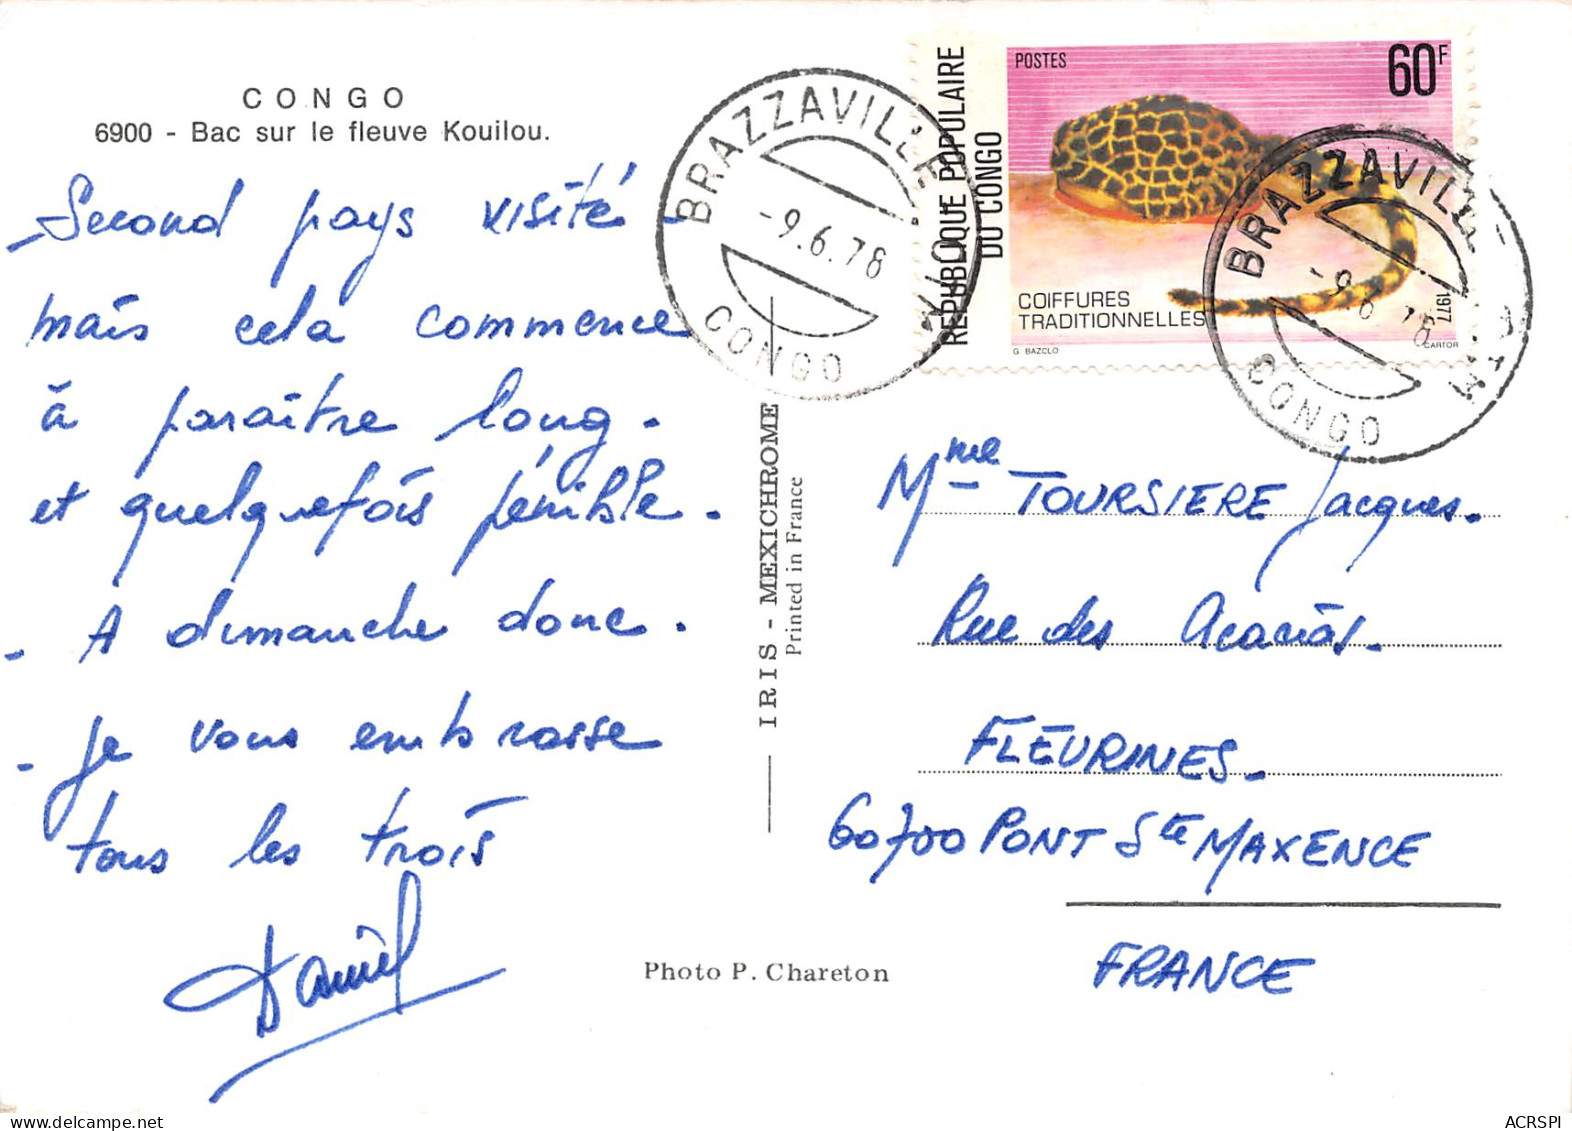 CONGO
6900 - Bac sur le fleuve Kouilou.
Second pays visité -
mais cela commence
à paraître long.
et quelquefois pénible.
- A dimanche donc.
- Je vous embrasse
tous les trois
Daniel
BRAZZAVILLE R.P.
-9.6.78
CONGO
IRIS - MEXICHROME
Printed in France
Photo P. Chareton
REPUBLIQUE POPULAIRE
DU CONGO
POSTES
60F
COIFFURES
TRADITIONNELLES
G. BAZCLO
1977
CARTOR
BRAZZAVILLE
-9.6.78
CONGO
Mme TOURSIERE Jacques.
Rue des Acacias.
FLEURINES.
60700 PONT Ste MAXENCE
FRANCE
delcampe.net
ACRSPI